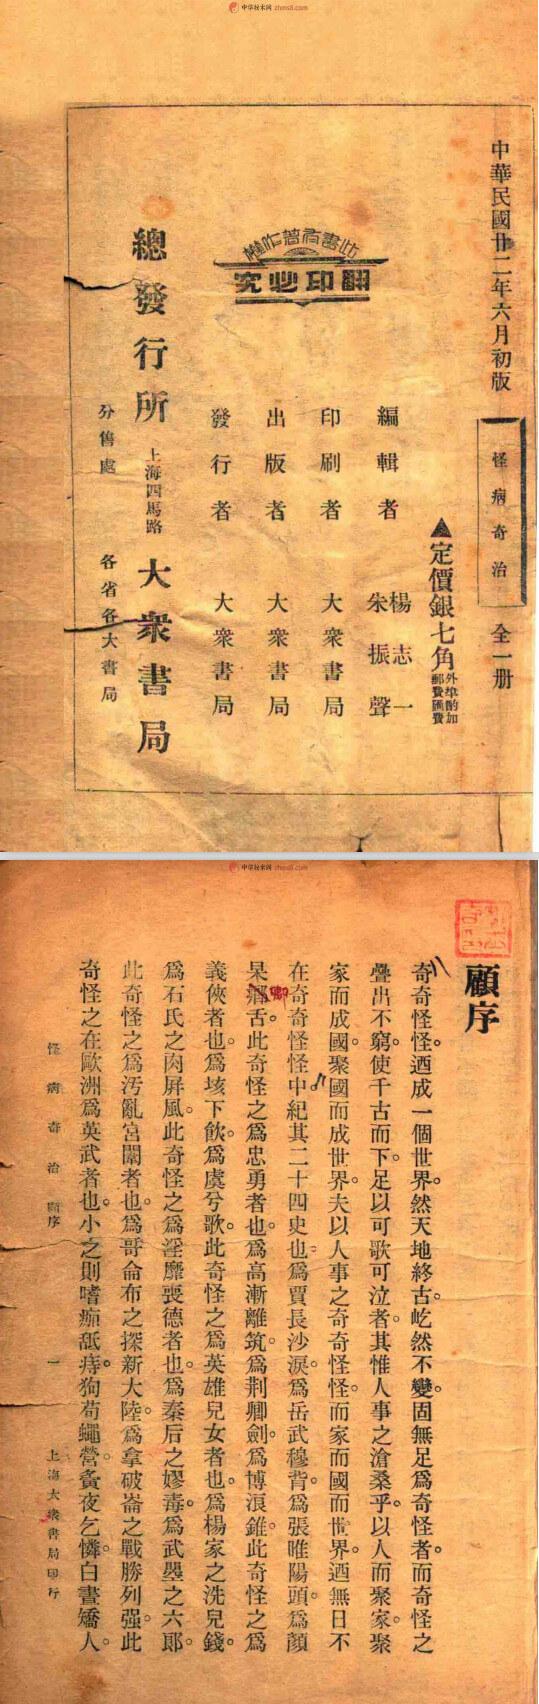 中华秘术网 zhms8.com
中華民國廿二年六月初版
怪病奇治
全一册
▲定價銀七角
外埠酌加
郵費匯費
此書有著作權
翻印必究
編輯者
楊志一
朱振聲
印刷者 大衆書局
出版者 大衆書局
發行者 大衆書局
總發行所 上海四馬路 大衆書局
分售處 各省各大書局
中华秘术网 zhms8.com
顧序
奇奇怪怪。迺成一個世界。然天地終古。屹然不變。固無足爲奇怪者。而奇怪之
疊出不窮。使千古而下。足以可歌可泣者。其惟人事之滄桑乎。以人而聚家。聚
家而成國。聚國而成世界。夫以人事之奇奇怪怪。而家而國而世界。迺無日不
在奇奇怪怪中。紀其二十四史也。爲賈長沙淚。爲岳武穆背。爲張睢陽頭。爲顏
杲卿舌。此奇怪之爲忠勇者也。爲高漸離筑。爲荆卿劍。爲博浪錐。此奇怪之爲
義俠者也。爲垓下飲。爲虞兮歌。此奇怪之爲英雄兒女者也。爲楊家之洗兒錢。
爲石氏之肉屏風。此奇怪之爲淫靡喪德者也。爲秦后之嫪毐。爲武曌之六郎。
此奇怪之爲汚亂宮闈者也。爲哥侖布之探新大陸。爲拿破崙之戰勝列强。此
奇怪之在歐洲爲英武者也。小之則嗜痂舐痔。狗苟蠅營。夤夜乞憐。白晝驕人。
怪病奇治 顧序
一
上海大衆書局印行